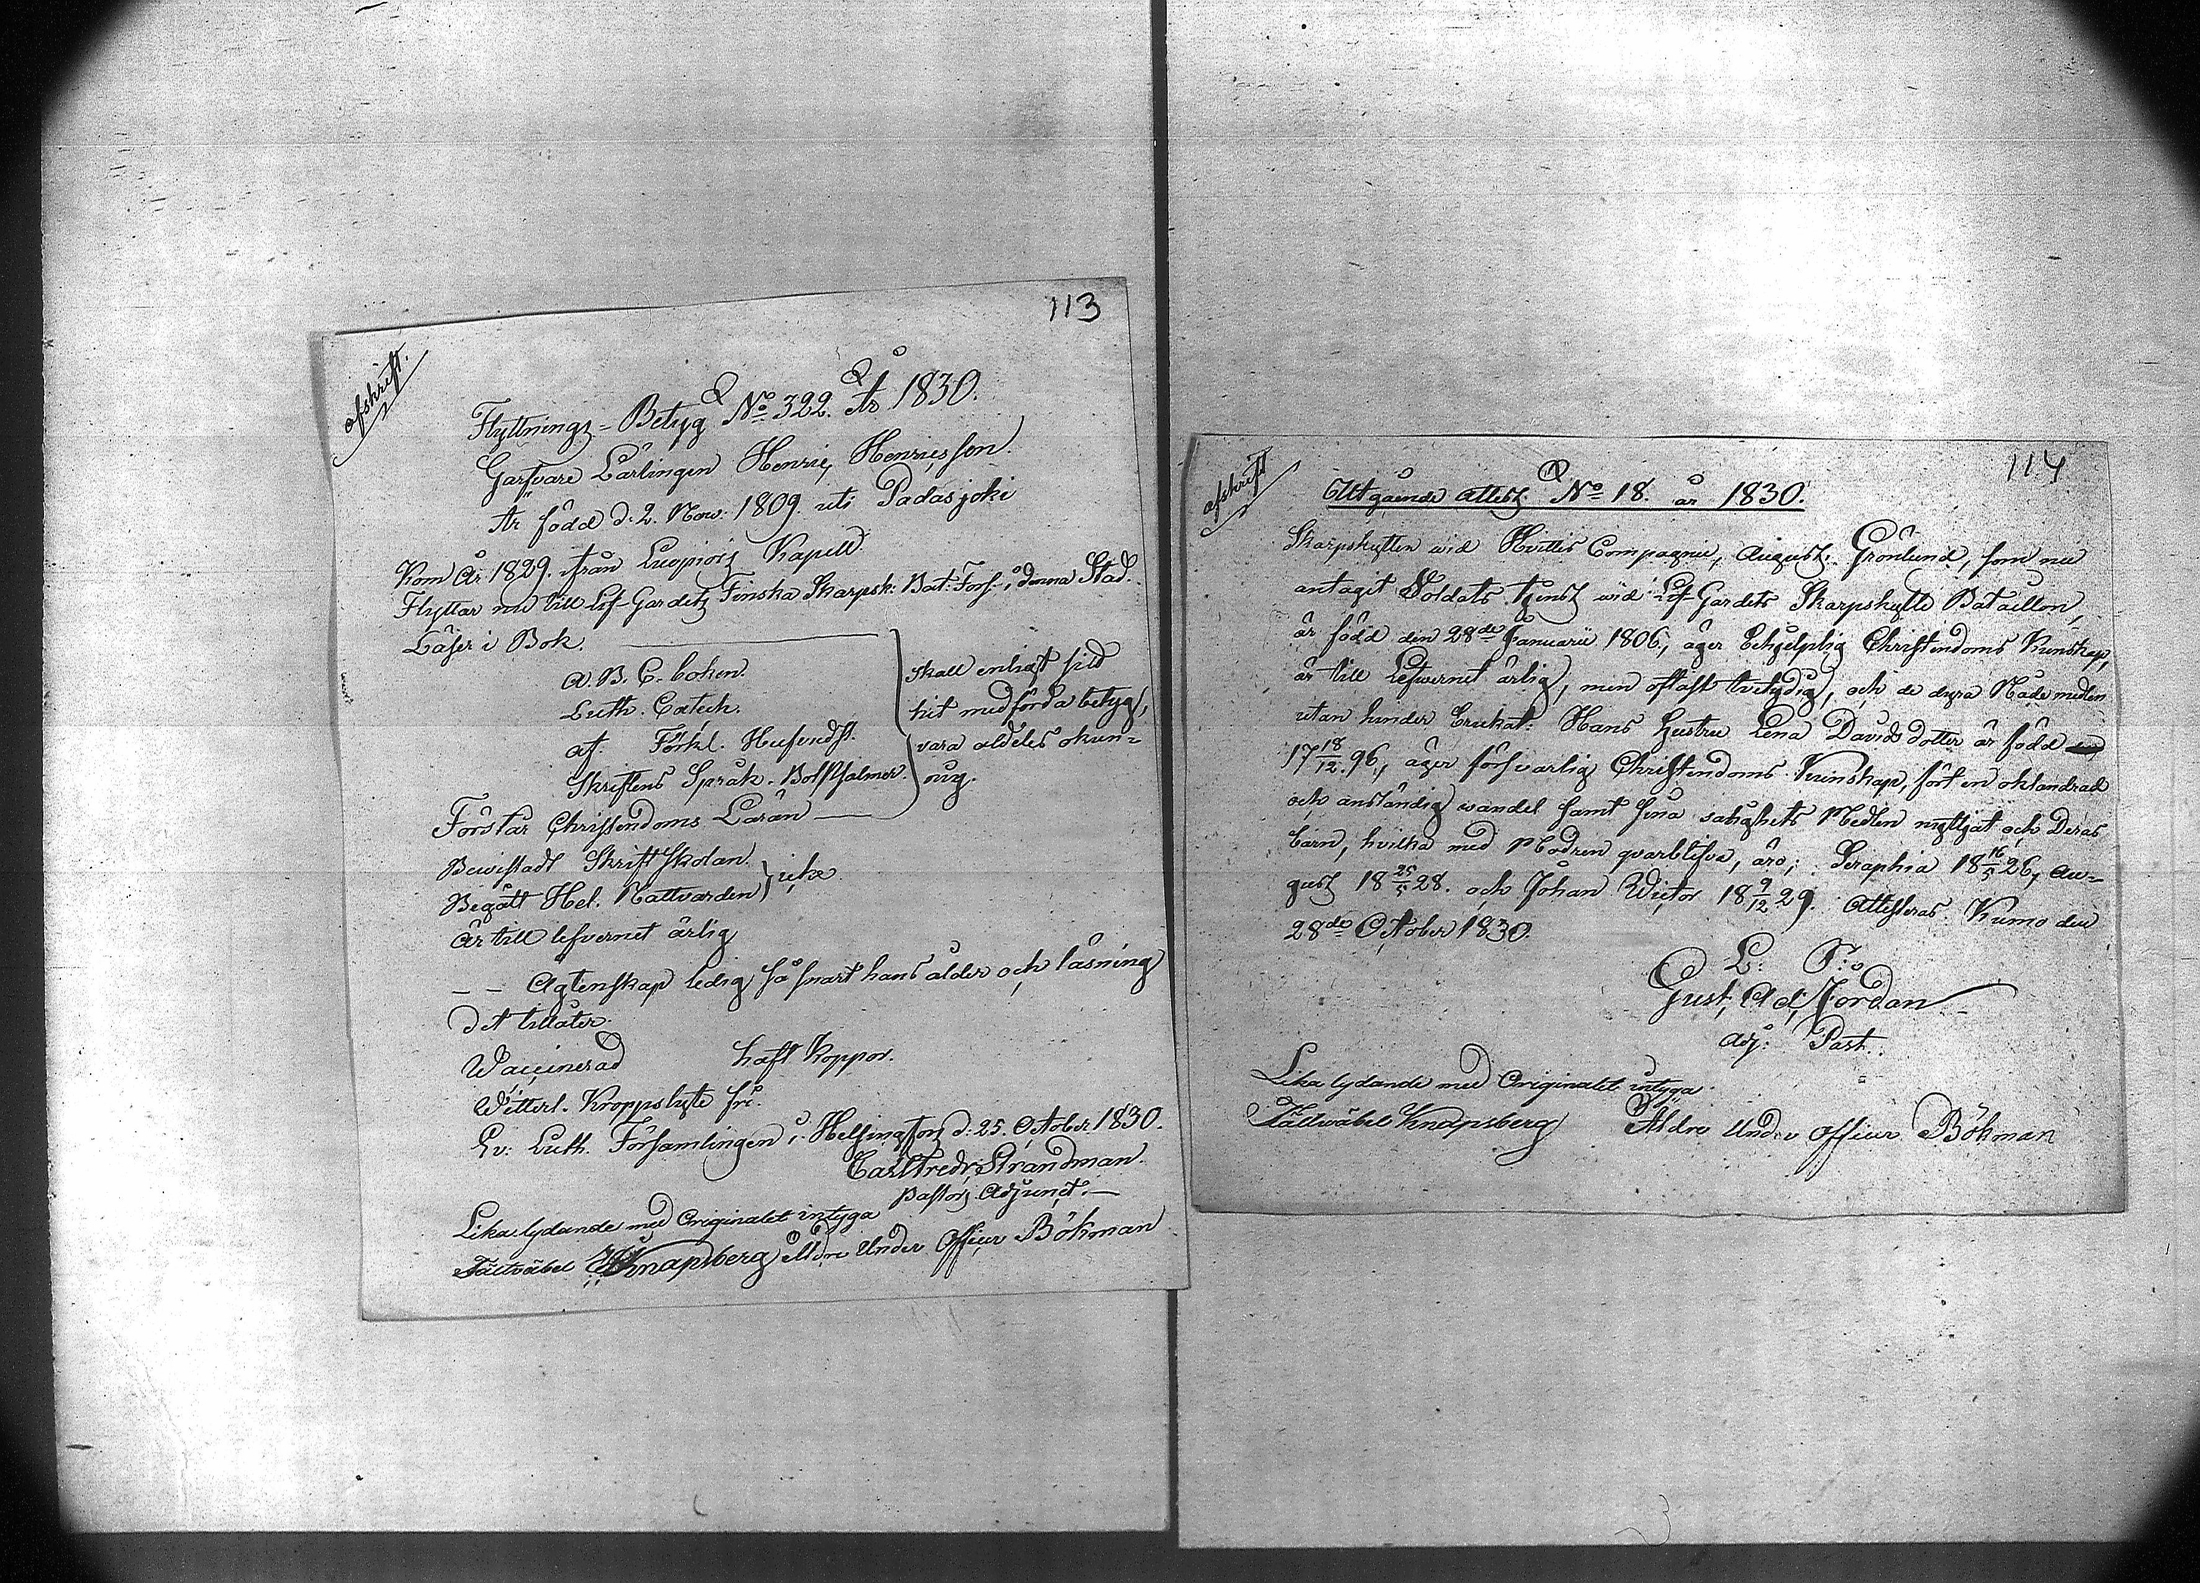 113
afskrift.
Flyttnings-Betyg No 322. År 1830.
Garfvare Lärlingen Henric Henricsson.
Är född d: 2. Nov: 1809. uti Padasjoki
Kom År 1829. ifrån Luopiois Kapell.
Flyttar nu till Lif-Gardets Finska Skarpsk: Bat: Förs: i denna Stad.
Läser i Bok.
A. B. C. boken.
Luth. Catech.
af: Förkl. Hufvudst.
Skriftens Språk. Botpsalmer.
Förstår Christendoms Läran
skall enligt sitt
hit medförda betyg,
vara aldeles okun-
nig.
Bewistadt Skriftskolan.
Begått Hel. Nattvarden } icke
Är till lefvernet ärlig
— — Ägtenskap ledig så snart hans ålder och läsning
det tillåter.
Waccinerad haft Koppor.
Vitterl. Kroppslyte fri.
Ev: Luth. Församlingen i Helsingfors d: 25. October 1830.
Carl Fredr. Strandman.
Pastors Adjunct.
Lika lydande med Originalet intyga
Fältväbel Knapsberg Äldre Under Officer Böhman
114
afskrift
Utgående Attest No 18. år 1830.
Skarpskytten wid Hvittis Compagnie, August Grönlund, som nu
antagit Soldats tjenst wid Lif-Gardets Skarpskytte Bataillon,
är född den 28de Januarii 1806, äger behjelplig Christendoms Kunskap,
är till Lefwernet ärlig, men oftast tvetydig, och de dyra Nådemedlen
utan hinder brukat. Hans hustru Lena Davidsdotter är född
17 18/12 96, äger försvarlig Christendoms Kunskap, fört en oklandrad
och anständig wandel samt sina salighets Medlen nyttjat och Deras
barn, hvilka med Modren qvarblifva, äro; Seraphia 18 16/5 26, Au-
gust 18 25/5 28. och Johan Wictor 18 9/12 29. Attesteras. Kumo den
28de October 1830.
L. S.
Gust. Ad. Jordan
Adj: Past.
Lika lydande med Originalet intyga
Fältväbel Knapsberg Äldre Under Officer Böhman